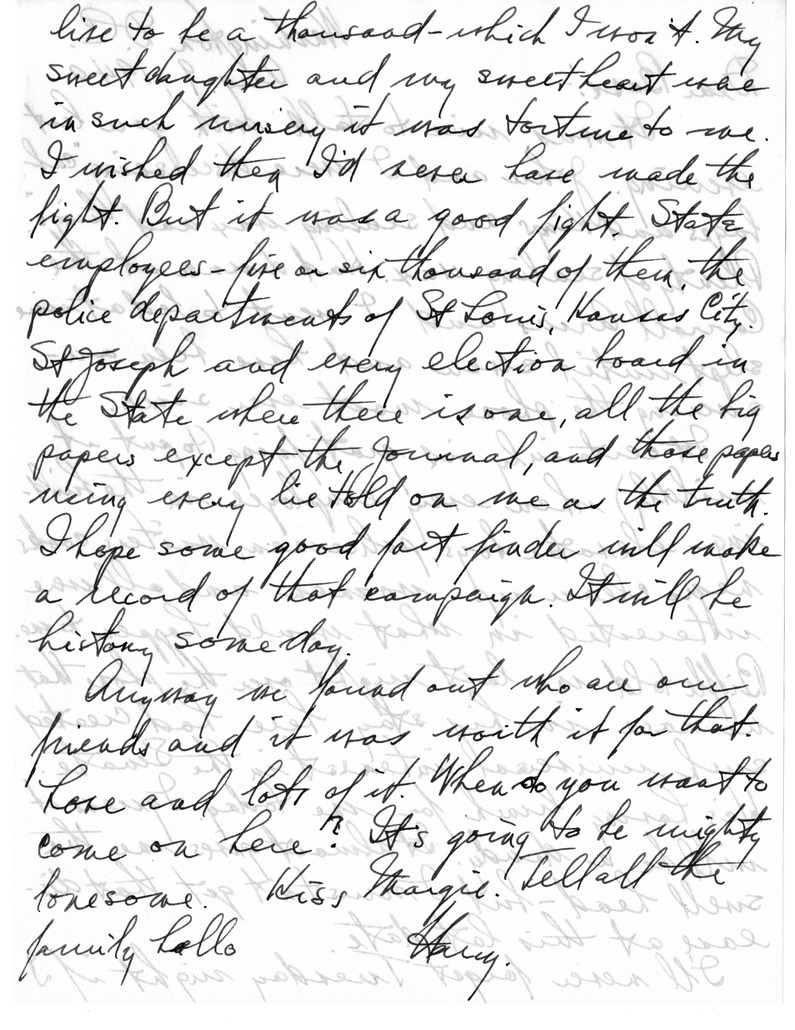 live to be a thousand - which I won't. My
sweet daughter and my sweetheart were
in such misery it was torture to me.
I wished then I'd never have made the
fight. But it was a good fight. State
employees - five or six thousand of them, the
police departments of St Louis, Kansas City.
St Joseph and every election board in
the State where there is one, all the big
papers except the Journal, and those papers
using every lie told on me as the truth.
I hope some good fact finder will make
a record of that campaign. It will be
history someday.
Anyway we found out who are our
friends and it was worth it for that.
Love and lots of it. When do you want to
come on here? It's going to be mighty
lonesome. Kiss Margie. Tell all the
family hello
Harry.